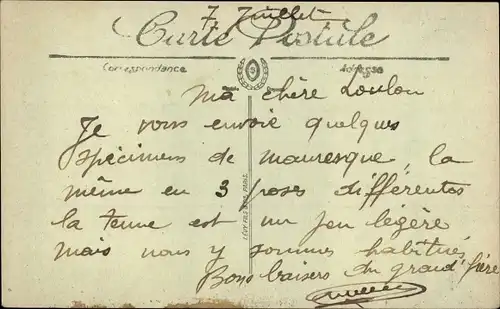 7 Juillet
Carte Postale
Correspondance
Adresse
Ma chère Loulou
Je vous envoie quelques
spécimens de mauresque, la
même en 3 poses différentes
la tenue est un peu légère
mais nous y sommes habitués
Bons baisers du grand frère
LÉVY FILS & Cie PARIS